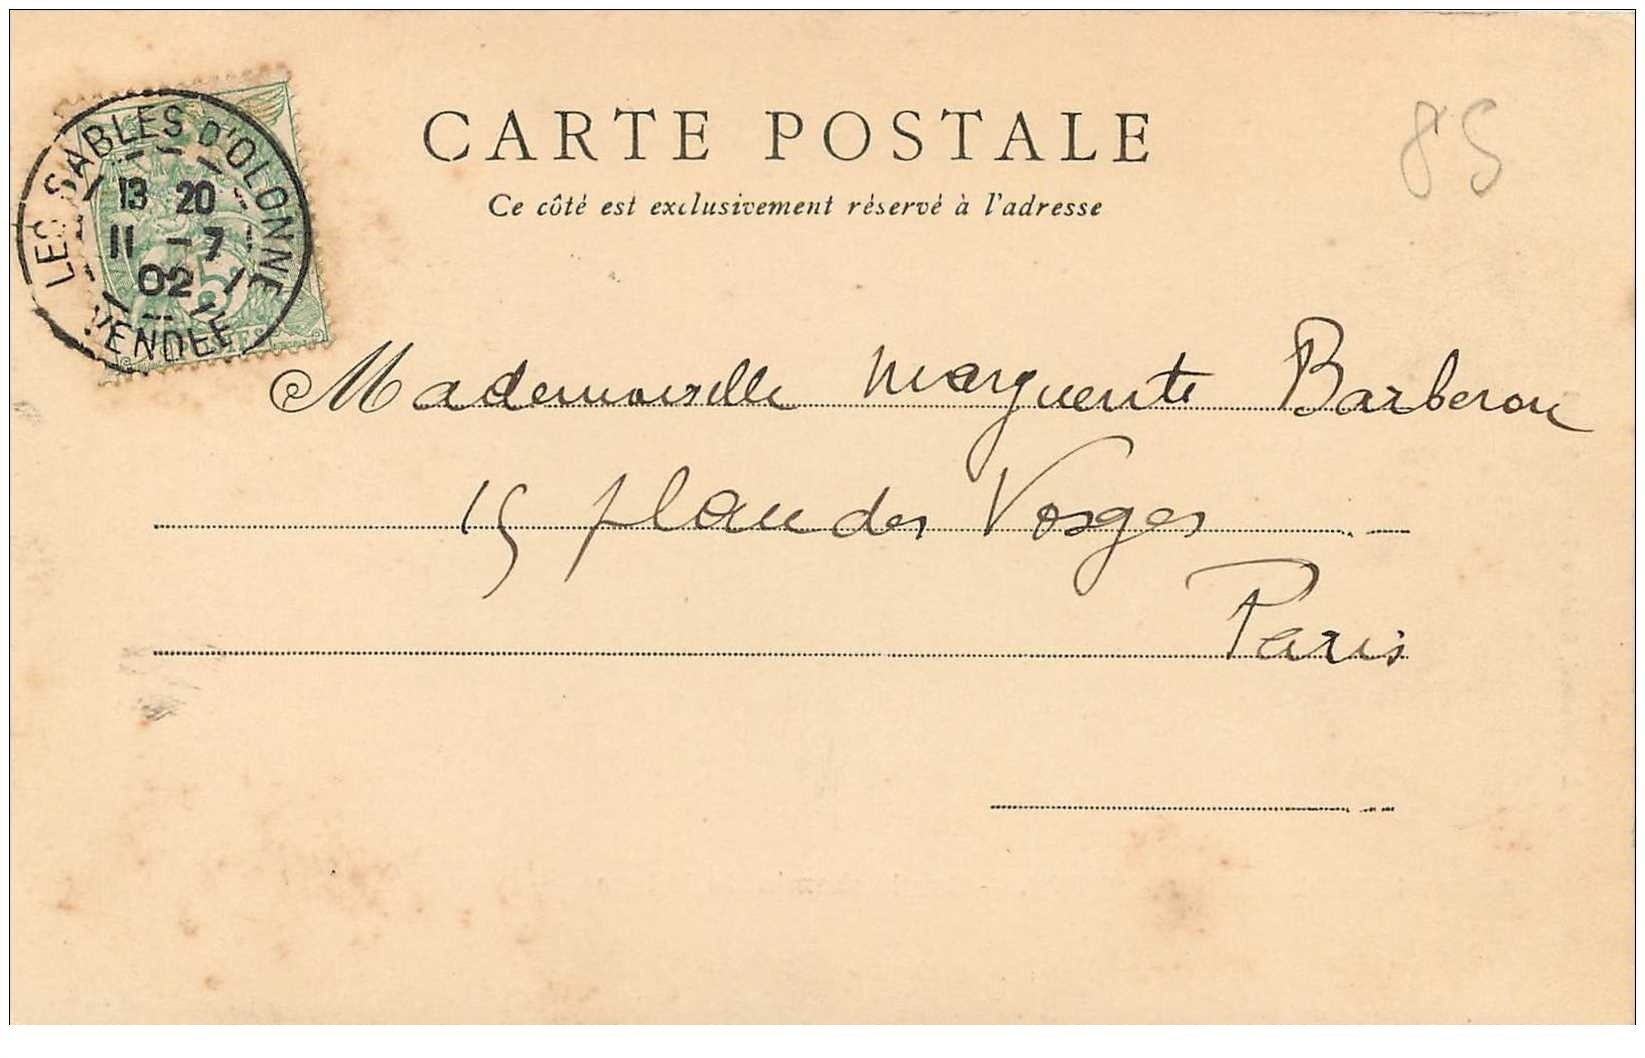 CARTE POSTALE
Ce côté est exclusivement réservé à l'adresse
85
LES SABLES D'OLONNE
13 20
11 - 7
02
VENDEE
5
Mademoiselle Marguerite Barberou
15 place des Vosges
Paris